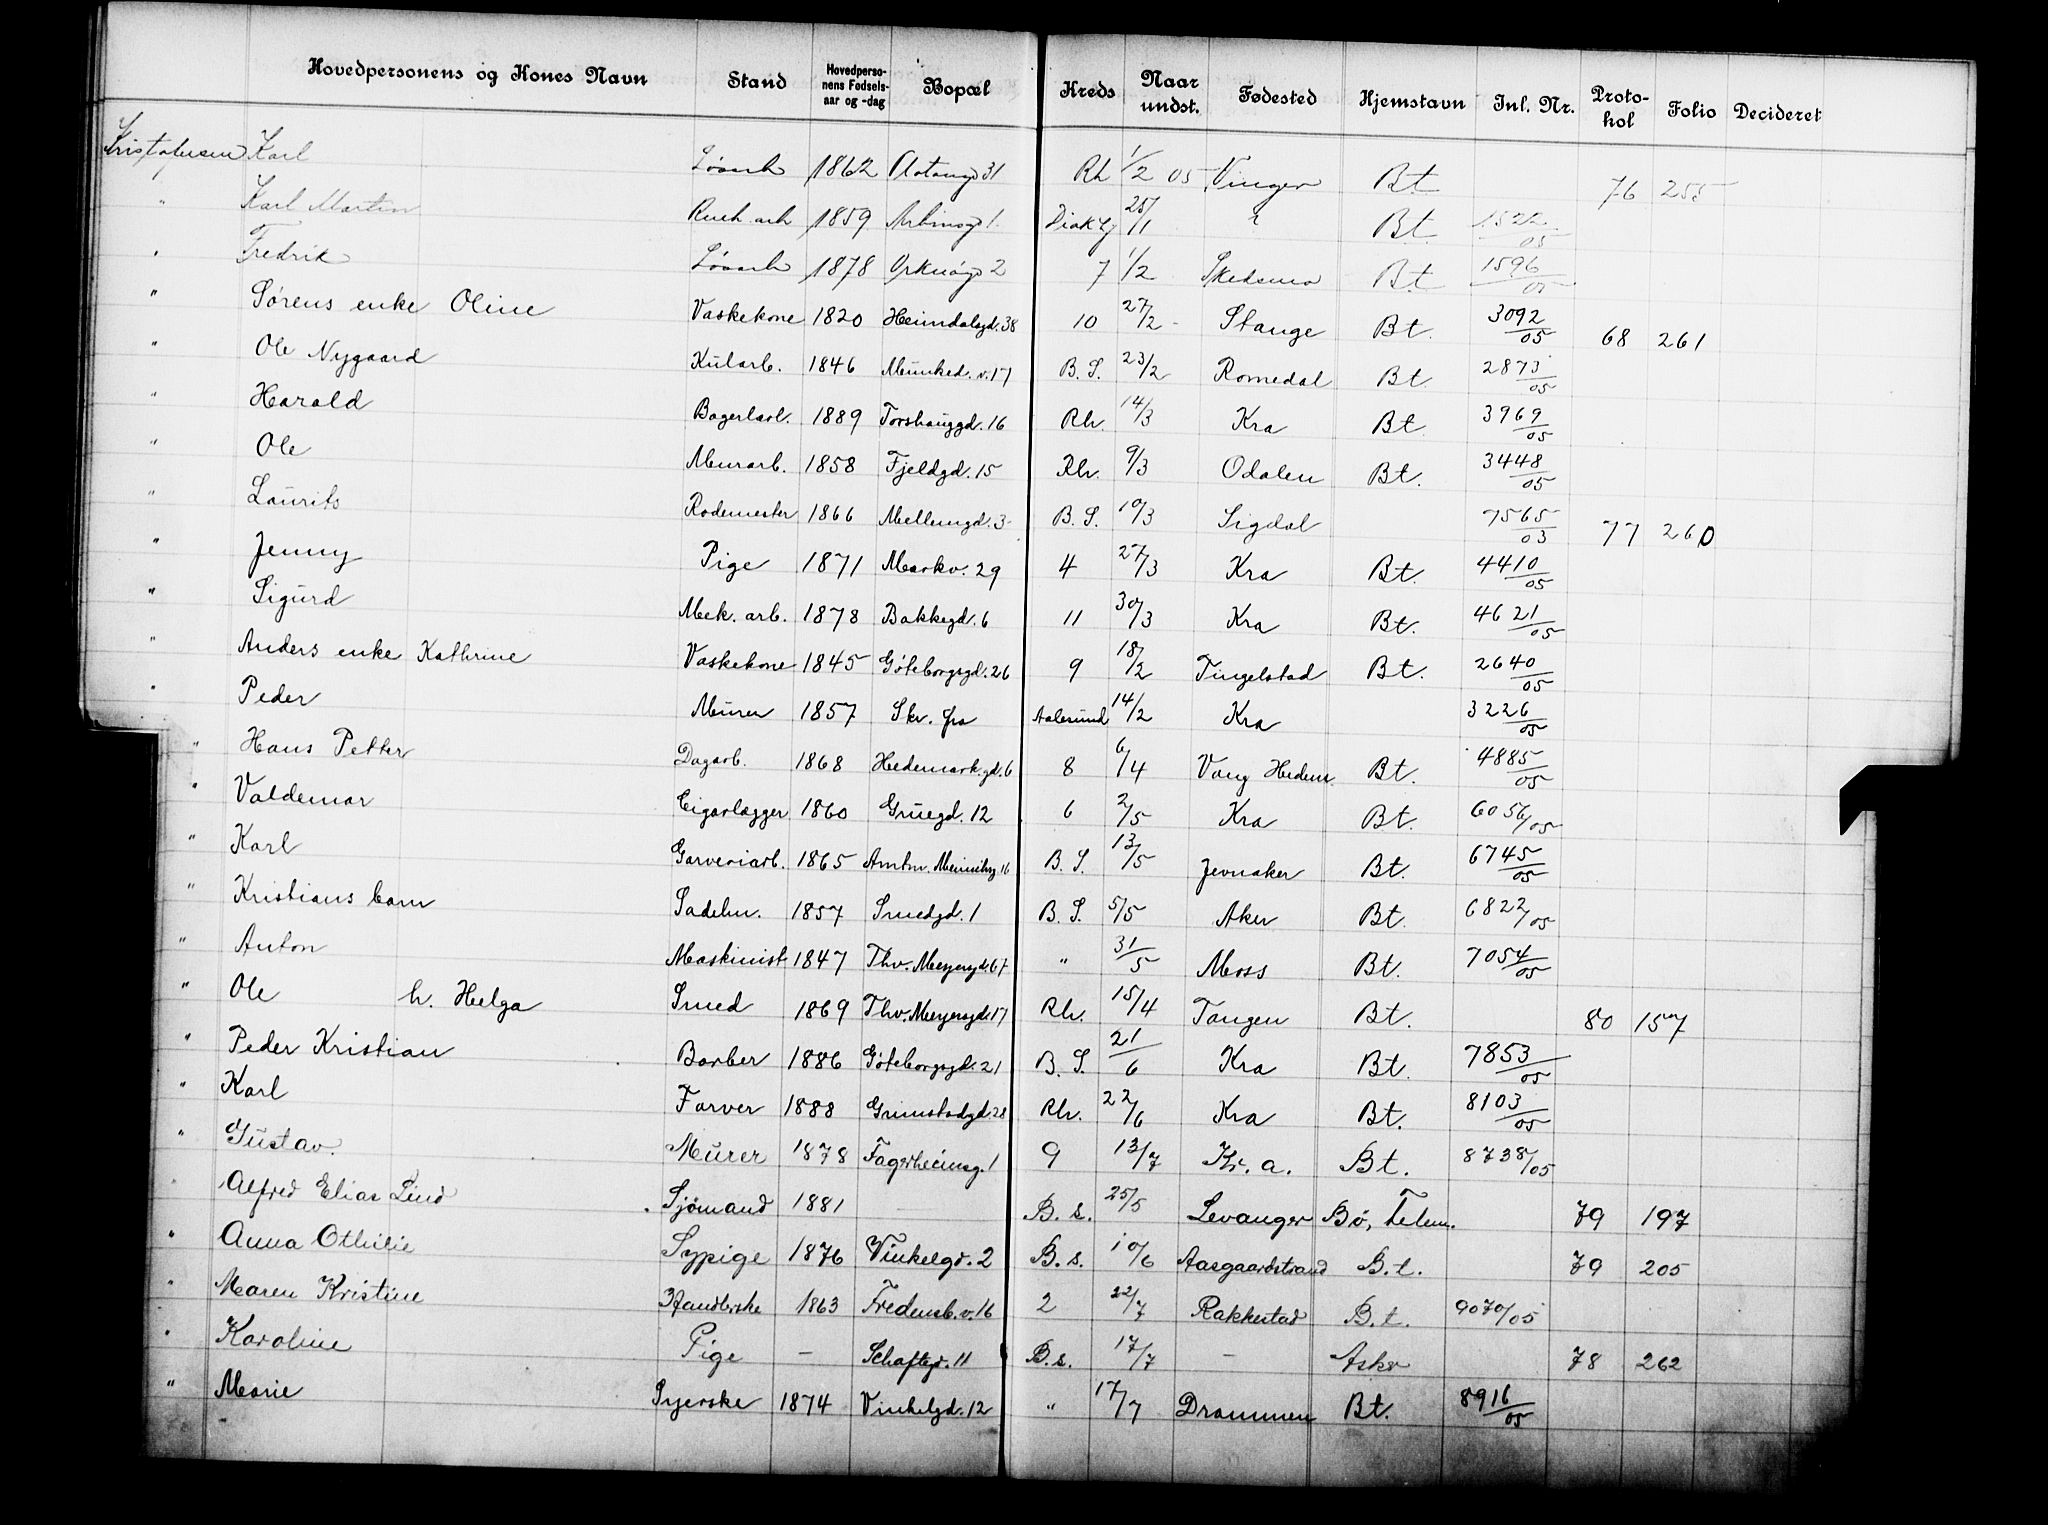 Hovedpersonens og Kones Navn Stand Hovedperso-nens Fødsels-aar og -dag Bopæl Kreds Naar undst. Fødested Hjemstavn Inl. Nr. Proto-kol Folio Decideret
Kristofersen Karl Løsarb 1862 31 Rh 1/2 05 Vinger Bt 76 255
" Karl Martin arb 1859 Arbinsg 1 25/1 Bt 1522/05
" Fredrik Løsarb 1878 2 7 1/2 Skedsmo Bt 1596/05
" Sørens enke Oline Vaskekone 1820 Heimdalsgd. 38 10 27/2 - Stange Bt. 3092/05 68 261
" Ole Nygaard Kularb. 1846 Munked. v. 17 B. S. 23/2 Romedal Bt. 2873/05
" Harald Bagerlærl. 1889 Torshauggd. 16 Rh. 14/3 Kra Bt. 3969/05
" Ole Murarb. 1858 Fjeldgd. 15 Rh. 9/3 Odalen Bt. 3448/05
" Laurits Rodemester 1866 Mellemgd. 3 B. S. 10/3 Sigdal 7565/03 77 260
" Jenny Pige 1871 Markv. 29 4 27/3 Kra Bt. 4410/05
" Sigurd Mek. arb. 1878 Bakkegd. 6 11 30/3 Kra Bt. 4621/05
" Anders enke Kathrine Vaskekone 1845 Göteborgsgd. 26 9 18/2 Tingelstad Bt. 2640/05
" Peder Murer 1857 Skr. fra Aalesund 14/2 Kra 3226/05
" Hans Petter Dagarb. 1868 Hedemark.gd. 6 8 6/4 Vang Hedem. Bt. 4885/05
" Valdemar Cigarlægger 1860 Gruegd. 12 6 2/5 Kra Bt. 6056/05
" Karl Garveriarb. 1865 Amtm. 16 B. S. 13/5 Jevnaker Bt. 6745/05
" Kristians barn Sadelm. 1857 Smedgd. 1 B. S. 5/5 Aker Bt. 6822/05
" Anton Maskinist 1847 Thv. Meyersgd. 67 " 31/5 Moss Bt. 7054/05
" Ole h. Helga Smed 1869 Thv. Meyersgd. 17 Rh. 15/4 Tangen Bt. 80 157
" Peder Kristian Barber 1886 Göteborgsgd. 21 B. S. 21/6 Kra Bt. 7853/05
" Karl Farver 1888 Grimstadgd. 28 Rh. 22/6 Kra Bt. 8103/05
" Gustav. Murer 1878 Fagerheimsg. 1 9 13/7 Kr. a. Bt. 8738/05
" Alfred Elias Lind Sjømand 1881 — B. s. 25/5 Levanger Bø, Telem. 79 197
" Anna Othilie Sypige 1876 Vinkelgd. 2 B. s. 10/6 Aasgaardstrand B. t. 79 205
" Maren Kristine 1863 Fredensb. v. 16 2 22/7 Rakkestad B. t. 9070/05
" Karoline Pige — Schaftgd. 11 B. s. 17/7 — Asker 78 262
" Marie Syerske 1874 Vinkelgd. 12 " 17/7 Drammen Bt. 8916/05